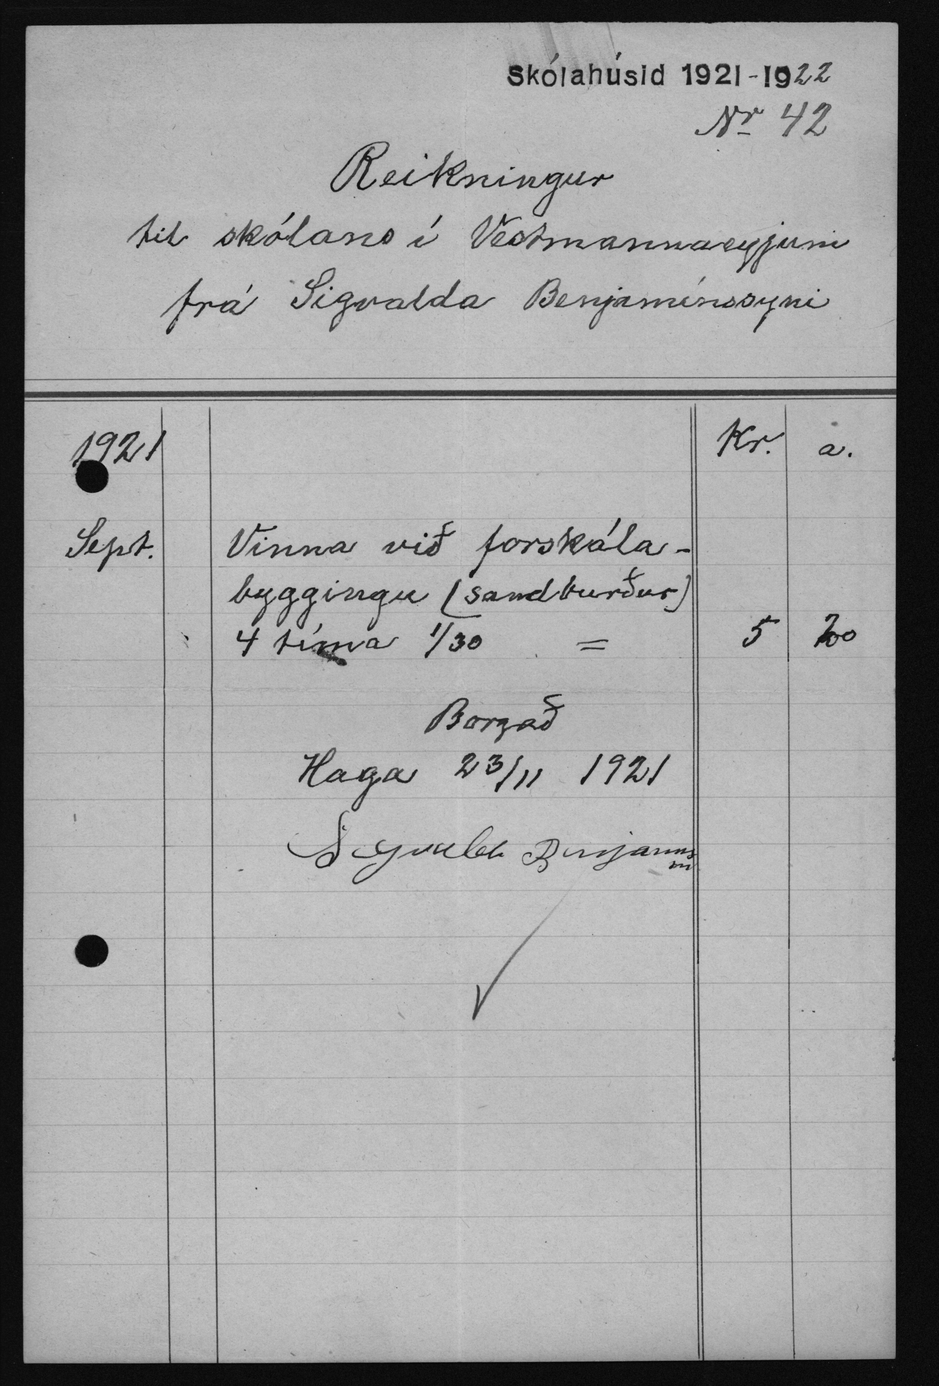 Skólahúsid 1921-1922
Nr 42
Reikningur
til skólans í Vestmannaeyjum
frá Sigvalda Benjamínssyni
1921 Kr. a.
Sept. Vinna við forskála-
byggingu (sandburður)
4 tíma 1/30 = 5 20
Borgað
Haga 23/11 1921
Sigvaldi Benjamíns
son